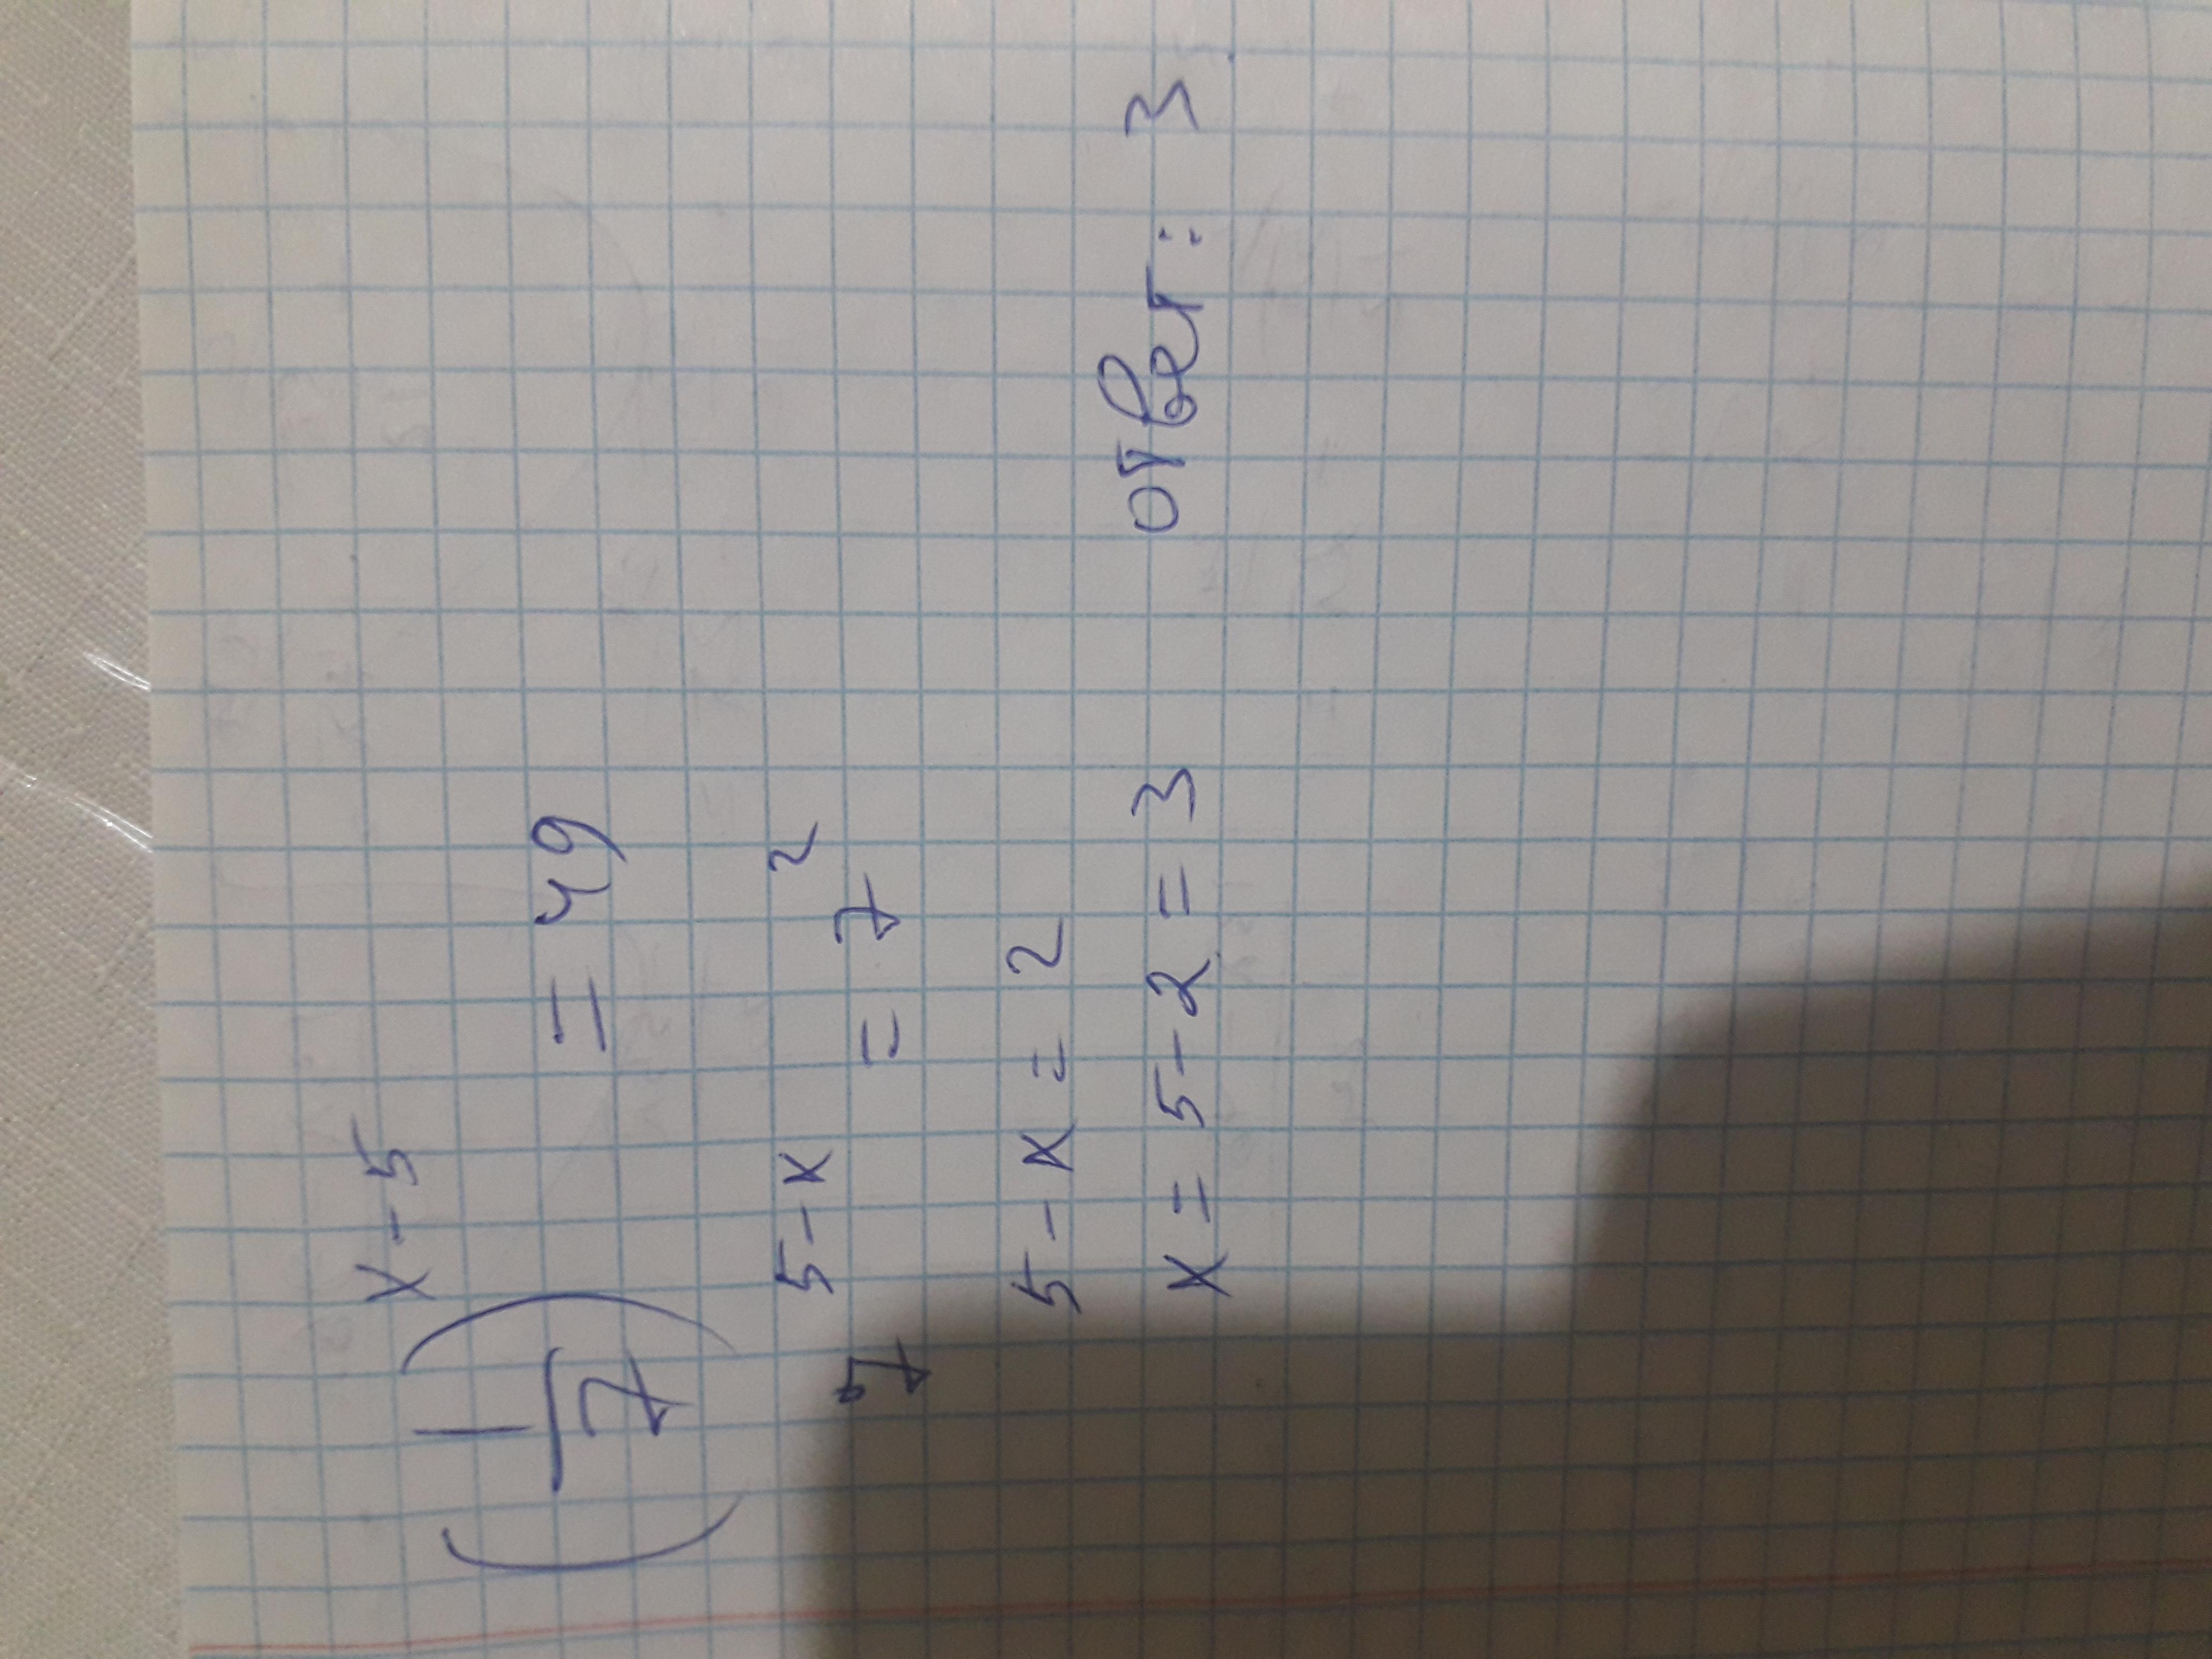 (1/7)^(x-5) = 49
7^(5-x) = 7^2
5-x = 2
x = 5-2 = 3 ответ: 3